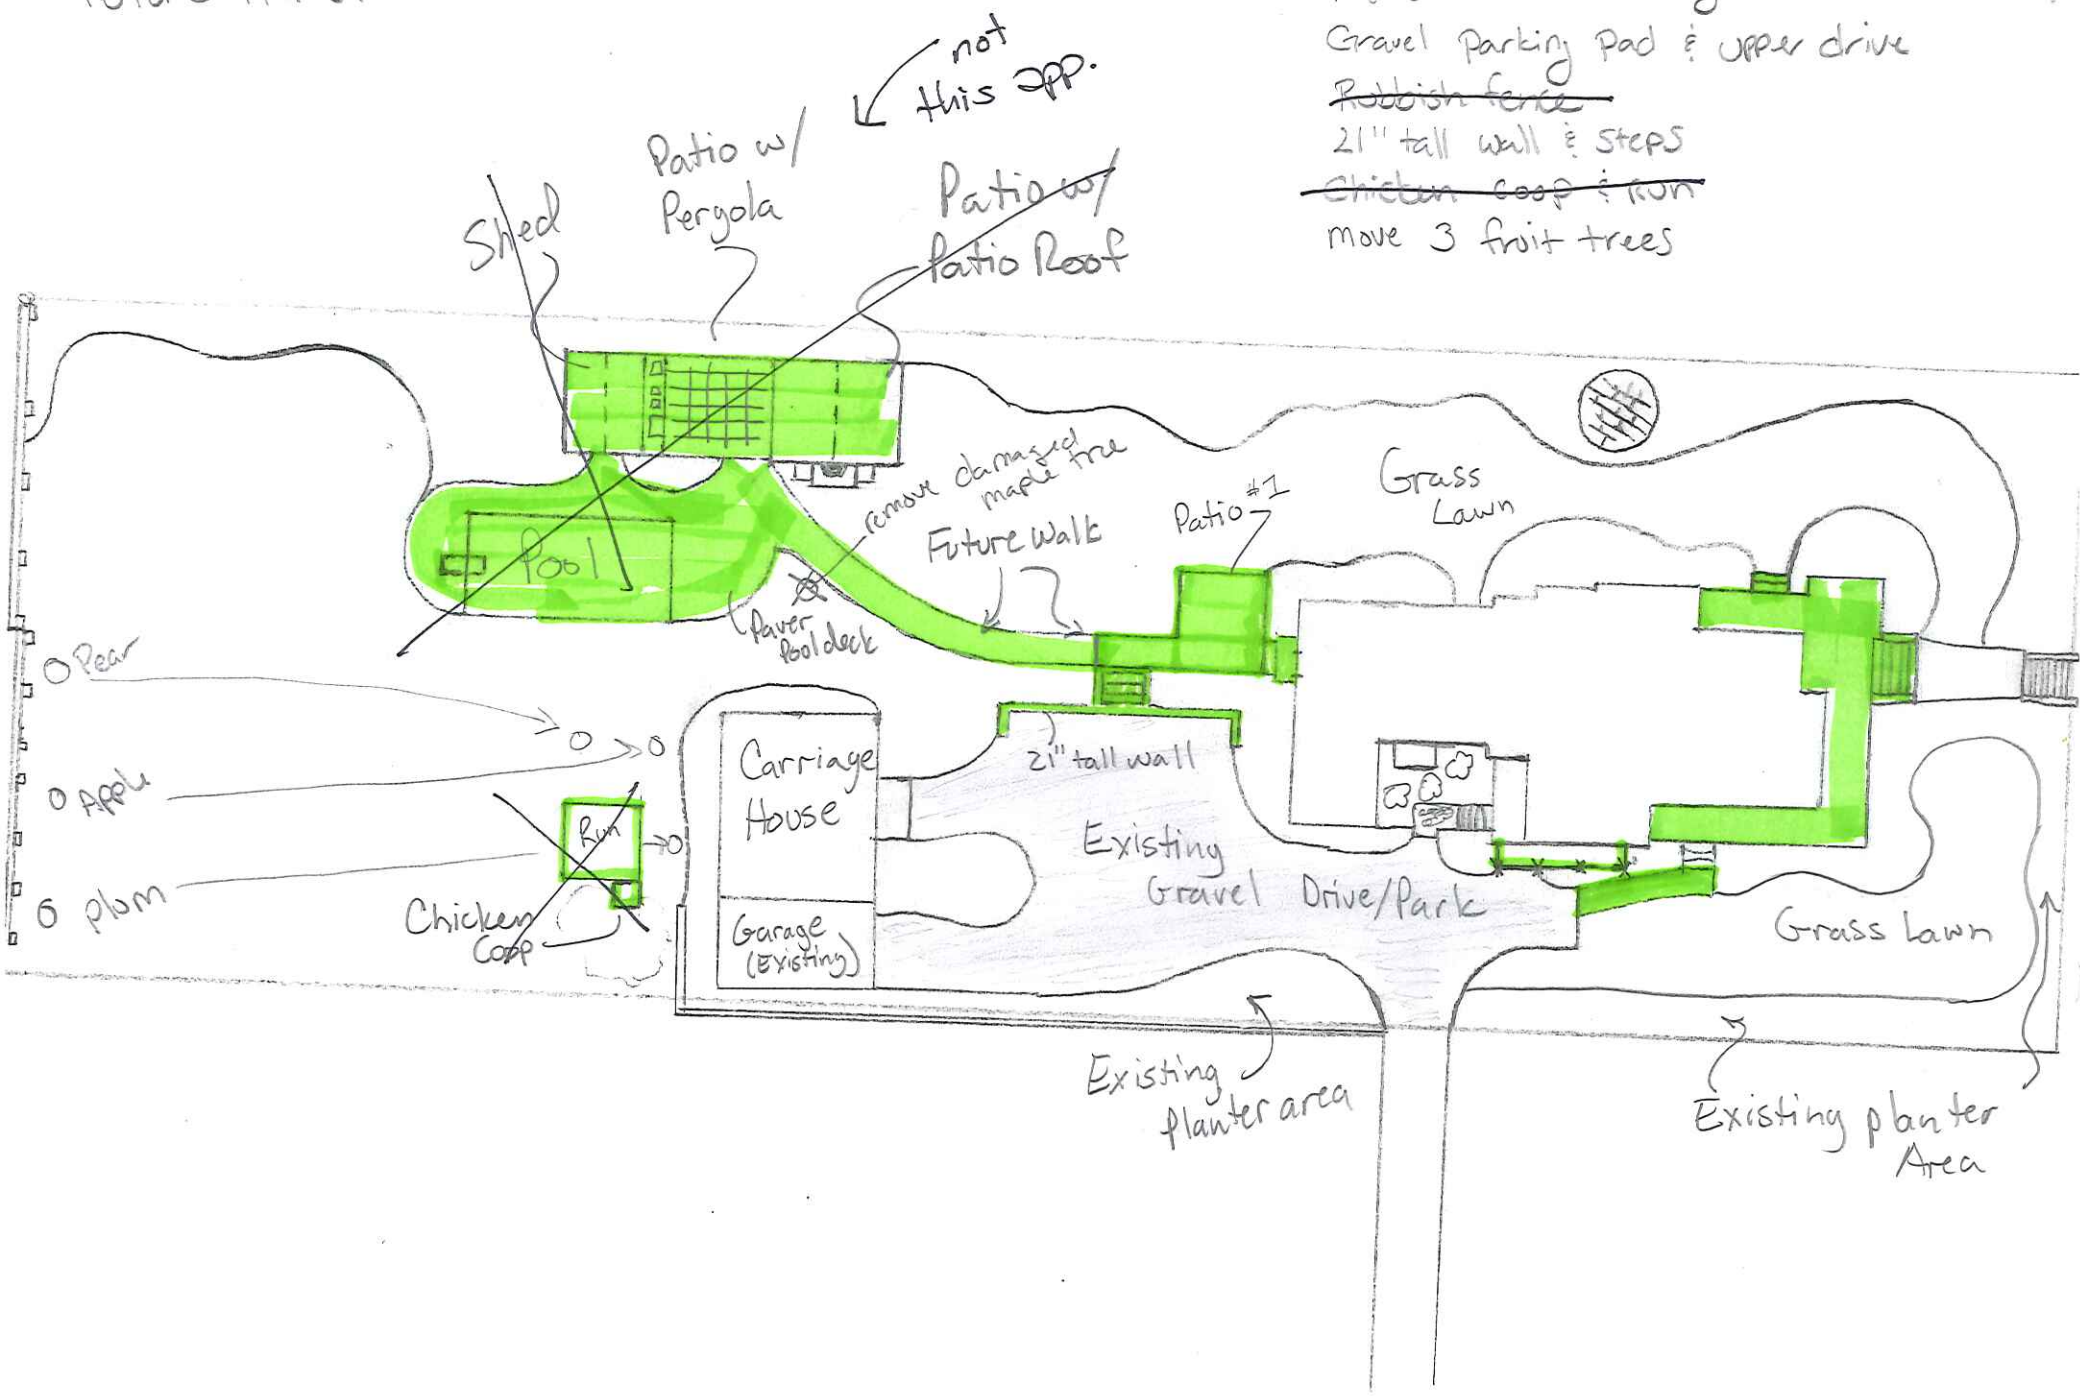 Gravel parking pad & upper drive
Rubbish fence
21" tall wall & steps
Chicken coop & Run
move 3 fruit trees
not
this app.
Patio w/
Pergola
Shed
Patio w/
Patio Roof
remove damaged
maple tree
Future Walk
Patio #1
Grass
Lawn
Pool
Paver
Pool deck
Pear
Apple
plum
Run
Chicken
Coop
Carriage
House
Garage
(Existing)
21" tall wall
Existing
Gravel Drive/Park
Grass Lawn
Existing
planter area
Existing planter
Area